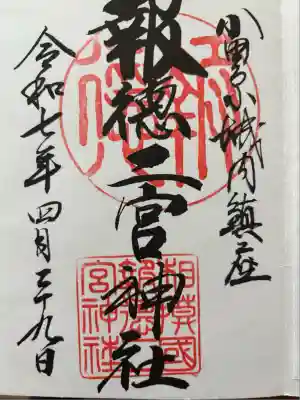 小田原城内鎮座
報徳二宮神社
相模國
報徳二
宮神社
令和七年四月二十九日